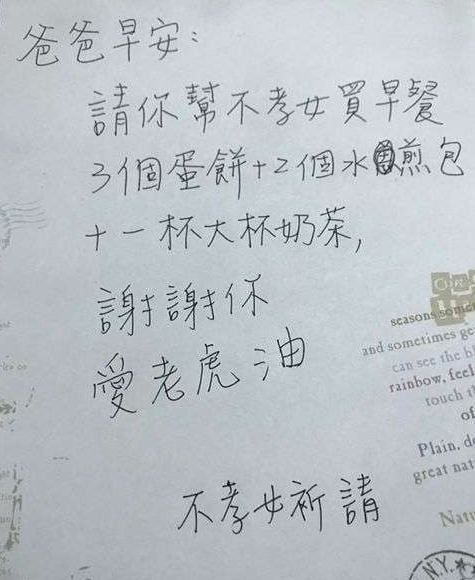 爸爸早安:
請你幫不孝女買早餐
3個蛋餅+2個水煎包
+一杯大杯奶茶,
謝謝你
愛老虎油
不孝女祈請
seasons
and sometimes
can see the
rainbow, feel
touch
of
Plain,
great
N.Y.